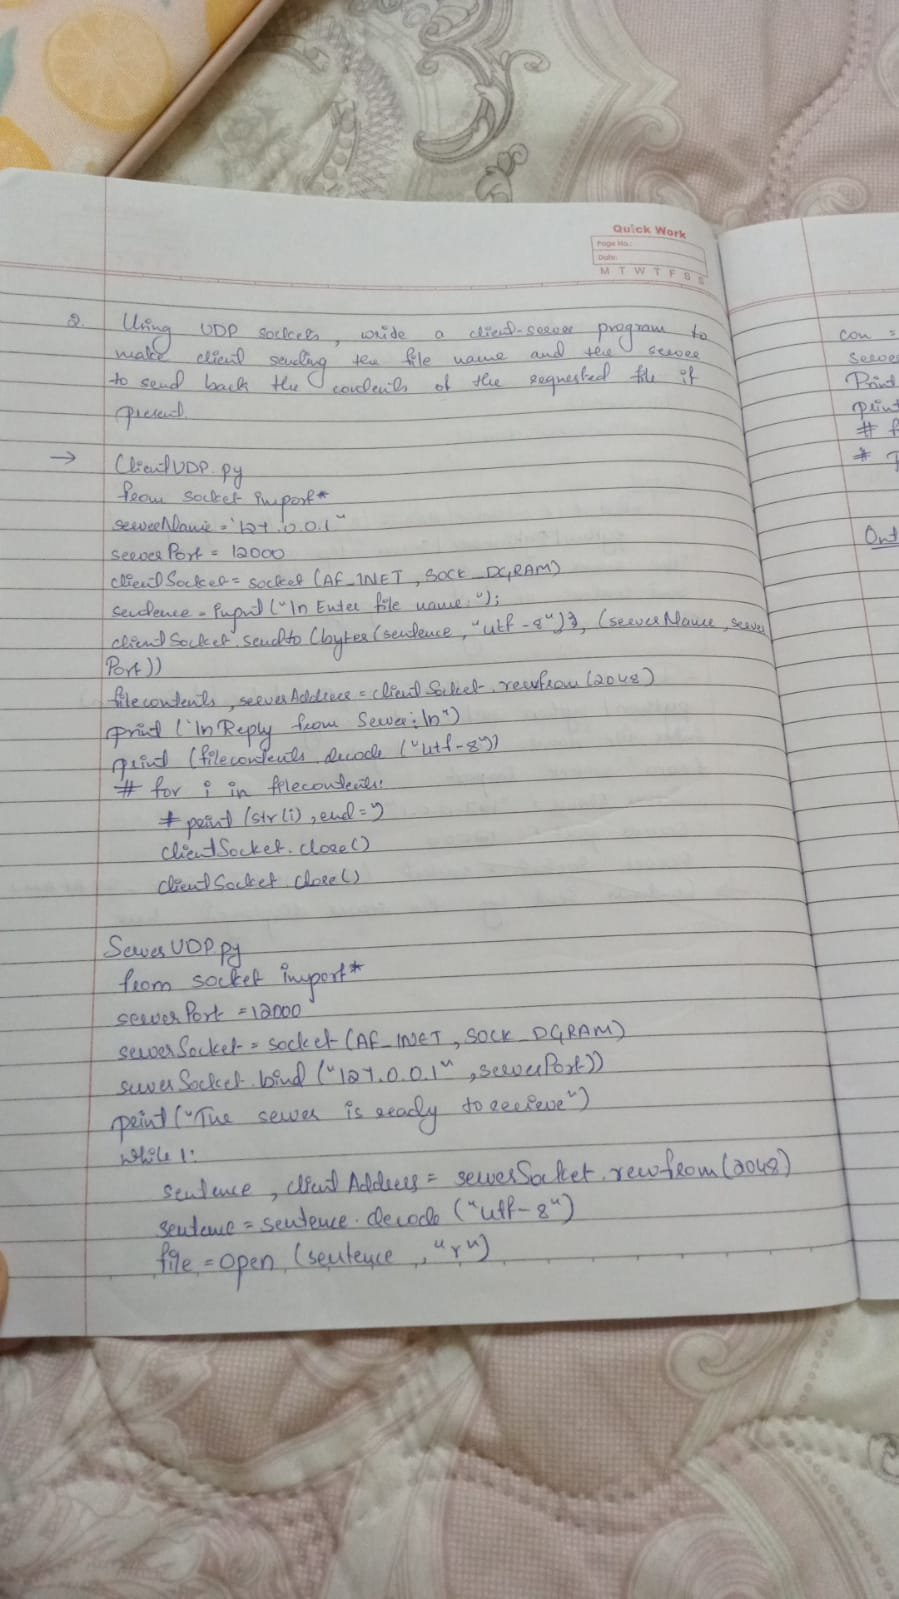 Quick Work
Page No.:
Date:
M T W T F S S
2. Using UDP sockets, write a client-server program to
make client sending the file name and the server
to send back the contents of the requested file if
present.
→ ClientUDP.py
from socket import*
serverName = '127.0.0.1"
serverPort = 12000
clientSocket = socket (AF_INET, SOCK_DGRAM)
sentence = input ("\n Enter file name: ");
clientSocket.sendto (bytes (sentence, "utf-8"), (serverName, server
Port))
filecontents, serverAddress = clientSocket.recvfrom (2048)
print ('\n Reply from Server: \n")
print (filecontents.decode ("utf-8"))
# for i in filecontents:
# print (str(i), end = ')
clientSocket.close()
clientSocket.close()
ServerUDP.py
from socket import*
serverPort = 12000
serverSocket = socket (AF_INET, SOCK_DGRAM)
serverSocket.bind ("127.0.0.1", serverPort))
print ("The server is ready to recieve")
while 1:
sentence, clientAddress = serverSocket.recvfrom (2048)
sentence = sentence.decode ("utf-8")
file = open (sentence, "r")
con =
server
Print
print
# f
#
Out